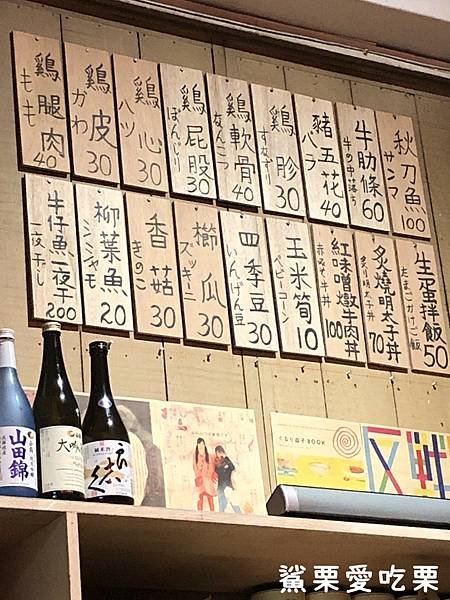 秋刀魚
サンマ
100
牛肋條
牛の中落ち
60
豬五花
バラ
40
雞胗
すなずり
30
雞軟骨
なんこつ
40
雞屁股
ぼんじり
30
雞心
ハツ
30
雞皮
かわ
30
雞腿肉
もも
40
生蛋拌飯
たまごかけご飯
50
炙燒明太子丼
炙り明太子丼
70
紅味噌燉牛肉丼
赤みそ牛丼
100
玉米筍
ベビーコーン
10
四季豆
いんげん豆
30
櫛瓜
ズッキーニ
30
香菇
きのこ
30
柳葉魚
シシャモ
20
牛仔魚一夜干
一夜干し
200
山田錦
大吟
ぐるり最子BOOK
鯊栗愛吃栗